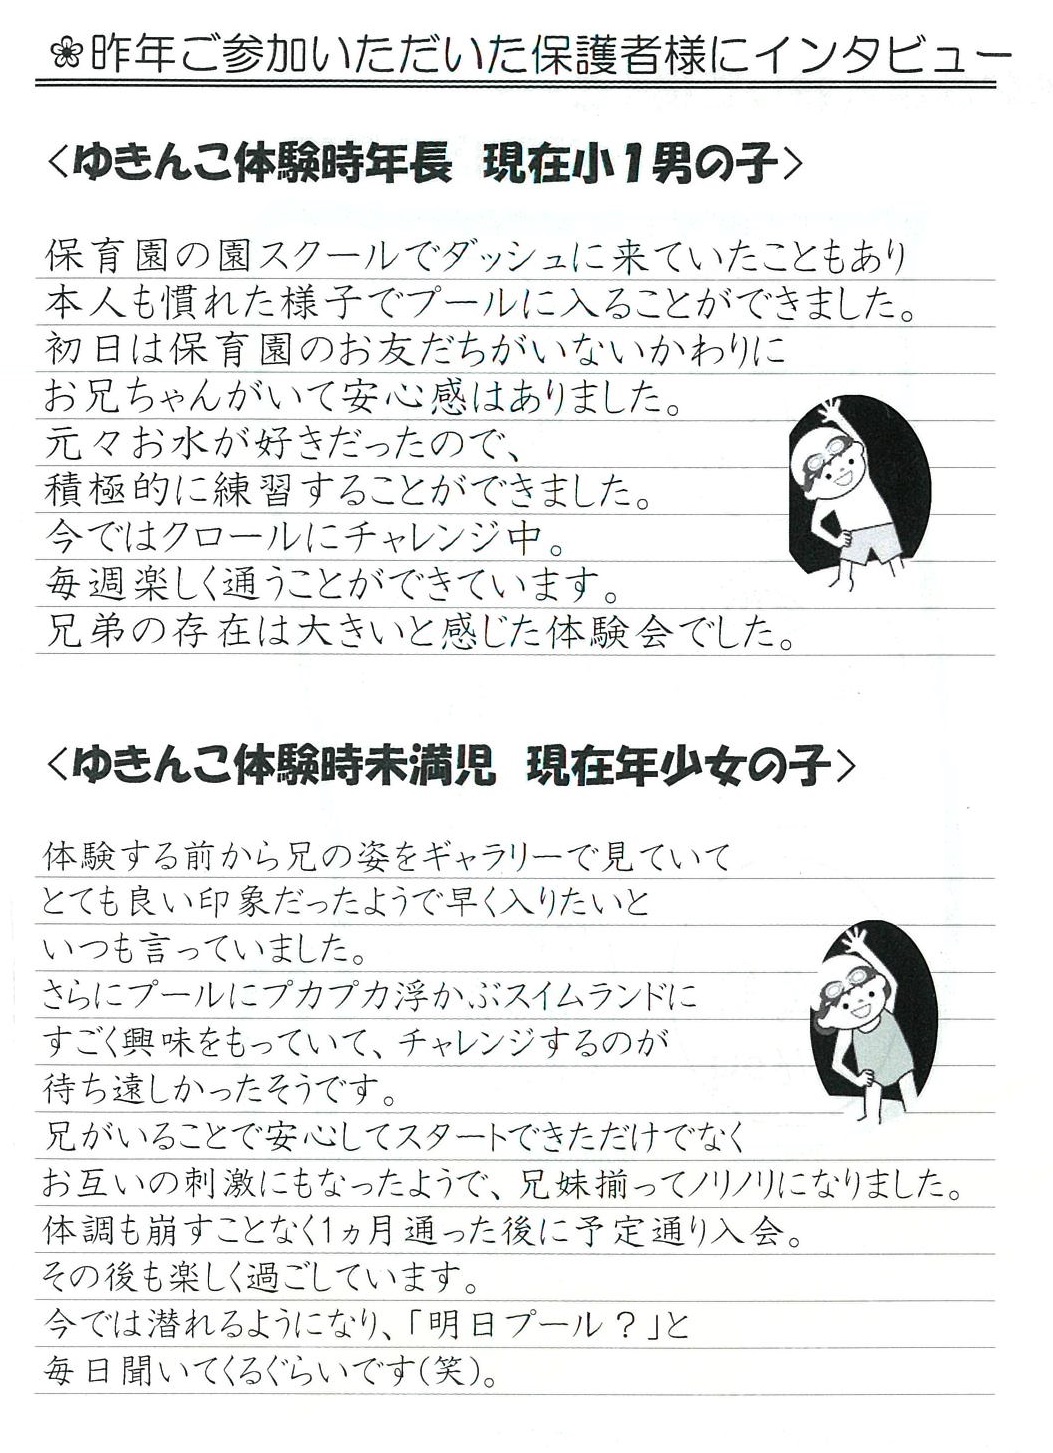 ❀昨年ご参加いただいた保護者様にインタビュー
<ゆきんこ体験時年長 現在小1男の子>
保育園の園スクールでダッシュに来ていたこともあり
本人も慣れた様子でプールに入ることができました。
初日は保育園のお友だちがいないかわりに
お兄ちゃんがいて安心感はありました。
元々お水が好きだったので、
積極的に練習することができました。
今ではクロールにチャレンジ中。
毎週楽しく通うことができています。
兄弟の存在は大きいと感じた体験会でした。
<ゆきんこ体験時未満児 現在年少女の子>
体験する前から兄の姿をギャラリーで見ていて
とても良い印象だったようで早く入りたいと
いつも言っていました。
さらにプールにプカプカ浮かぶスイムランドに
すごく興味をもっていて、チャレンジするのが
待ち遠しかったそうです。
兄がいることで安心してスタートできただけでなく
お互いの刺激にもなったようで、兄妹揃ってノリノリになりました。
体調も崩すことなく1ヵ月通った後に予定通り入会。
その後も楽しく過ごしています。
今では潜れるようになり、「明日プール？」と
毎日聞いてくるぐらいです(笑)。